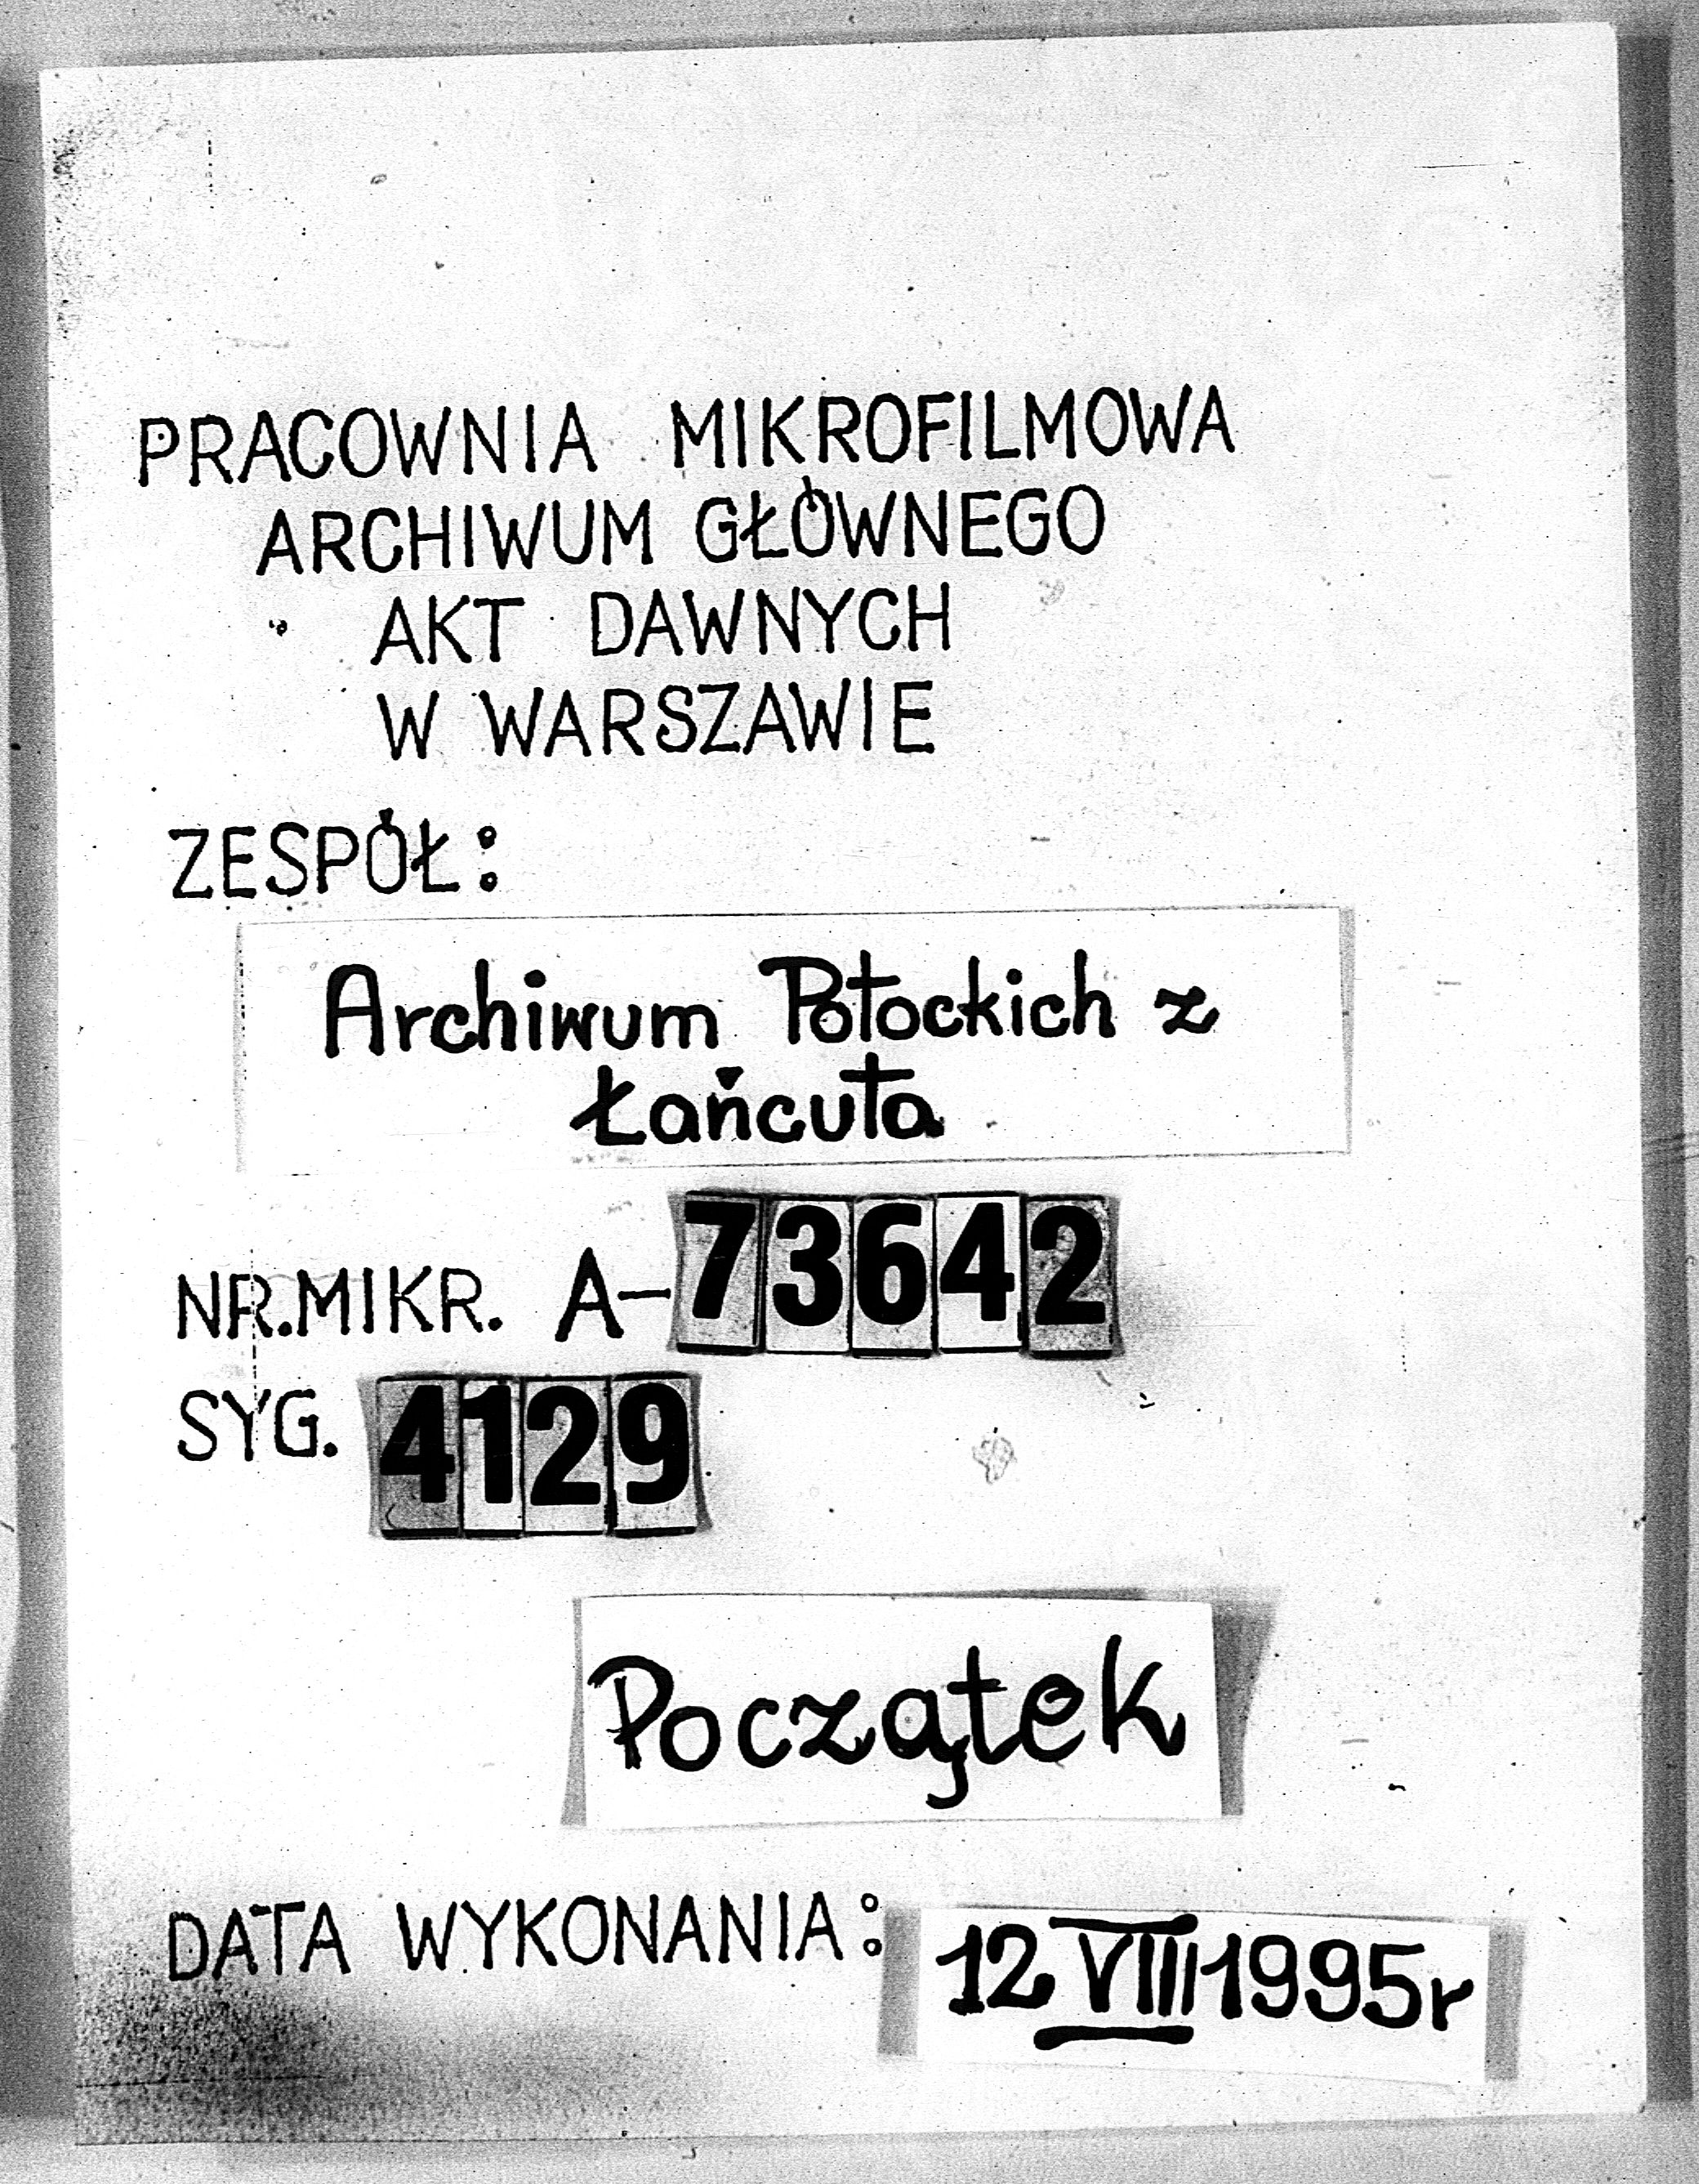 PRACOWNIA MIKROFILMOWA
ARCHIWUM GŁÓWNEGO
AKT DAWNYCH
W WARSZAWIE
ZESPÓŁ:
Archiwum Potockich z
Łańcuta
NR.MIKR. A-73642
SYG. 4129
Początek
DATA WYKONANIA: 12 VIII 1995r